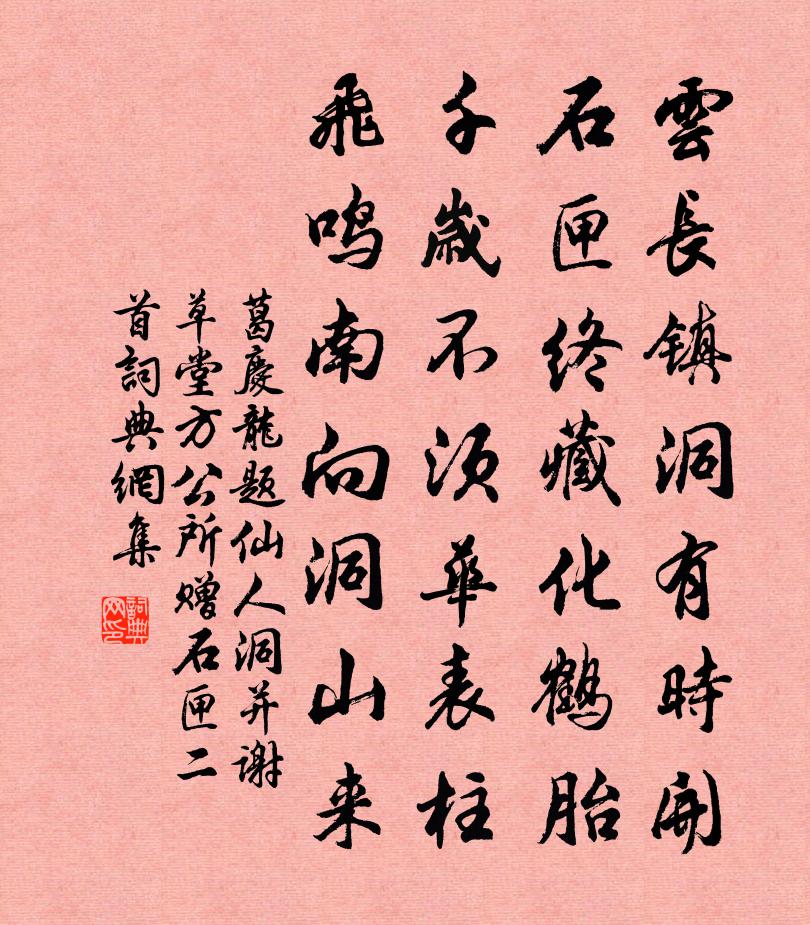 雲長镇洞有時開
石匣终藏化鹤胎
千歲不须華表柱
飛鸣南向洞山来
葛慶龍题仙人洞并谢
草堂方公所赠石匣二
首詞典網集
詞典网印